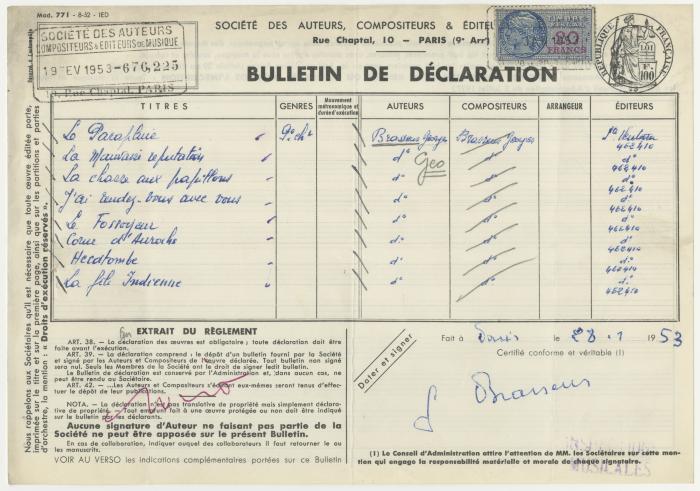 Mod. 771 - 8-52 - IED
SOCIÉTÉ DES AUTEURS, COMPOSITEURS & ÉDITEU
Rue Chaptal, 10 — PARIS (9e Arr
SOCIÉTÉ DES AUTEURS
COMPOSITEURS & ÉDITEURS DE MUSIQUE
19 FEV 1953-676,225
Rue Chaptal, PARIS
TIMBRE FISCAL
20
FRANCS
RÉPUBLIQUE FRANÇAISE
F. 100
BULLETIN DE DÉCLARATION
TITRES GENRES Mouvement métronomique et durée d'exécution AUTEURS COMPOSITEURS ARRANGEUR ÉDITEURS
Le Parapluie Brassens Georges Brassens Georges
462410
La Mauvaise réputation d° d° d°
462410
Geo
La chasse aux papillons d° d° d°
462410
J'ai rendez-vous avec vous d° d° d°
462410
Le Fossoyeur d° d° d°
462410
Corne d'Aurochs d° d° d°
462410
Hécatombe d° d° d°
462410
La file Indienne d° d° d°
462410
Nous rappelons aux Sociétaires qu'il est nécessaire que toute œuvre éditée porte,
imprimée sur le titre et sur la première page, ainsi que sur les partitions et parties
d'orchestre, la mention : « Droits d'exécution réservés ».
EXTRAIT DU RÈGLEMENT
ART. 38. — La déclaration des œuvres est obligatoire ; toute déclaration doit être
faite avant l'exécution.
ART. 39. — La déclaration comprend : le dépôt d'un bulletin fourni par la Société
et signé par les Auteurs et Compositeurs de l'œuvre déclarée. Tout bulletin non signé
sera nul. Seuls les Membres de la Société ont le droit de signer ledit bulletin.
Le Bulletin de déclaration est conservé par l'Administration et, dans aucun cas, ne
peut être rendu au Sociétaire.
ART. 42. — Les Auteurs et Compositeurs s'éditant eux-mêmes seront tenus d'effec-
tuer le dépôt de leur publication.
NOTA. — La déclaration n'est pas translative de propriété mais simplement déclara-
tive de propriété. Tout emprunt fait à une œuvre protégée ou non doit être indiqué
sur le bulletin par les déclarants.
Aucune signature d'Auteur ne faisant pas partie de la
Société ne peut être apposée sur le présent Bulletin.
En cas de collaboration, indiquer auquel des collaborateurs il faut retourner le ou
les manuscrits.
VOIR AU VERSO les indications complémentaires portées sur ce Bulletin
Dater et signer
Fait à Paris le 28.1 1953
Certifié conforme et véritable (1)
G Brassens
(1) Le Conseil d'Administration attire l'attention de MM. les Sociétaires sur cette men-
tion qui engage la responsabilité matérielle et morale de chaque signataire.
MUSICALES